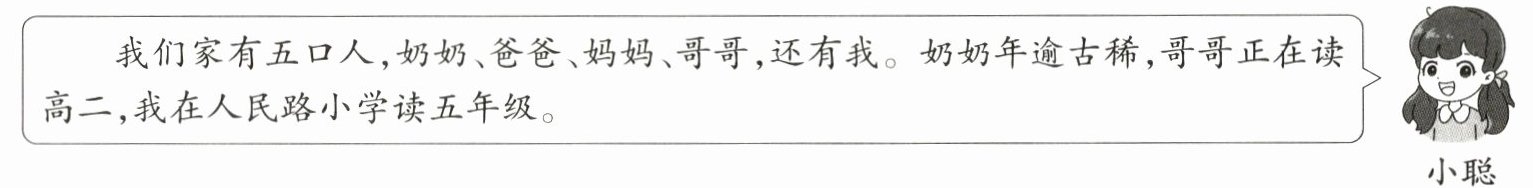 我们家有五口人,奶奶、爸爸、妈妈、哥哥,还有我。奶奶年逾古稀,哥哥正在读
高二,我在人民路小学读五年级。
小聪